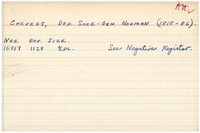 AA✓
CHEVERS, DEP. SURG-GEN. NORMAN (1818-86).
NEG. ENV. SIZE.
16818 1128 ½pl. See Negatives Register.